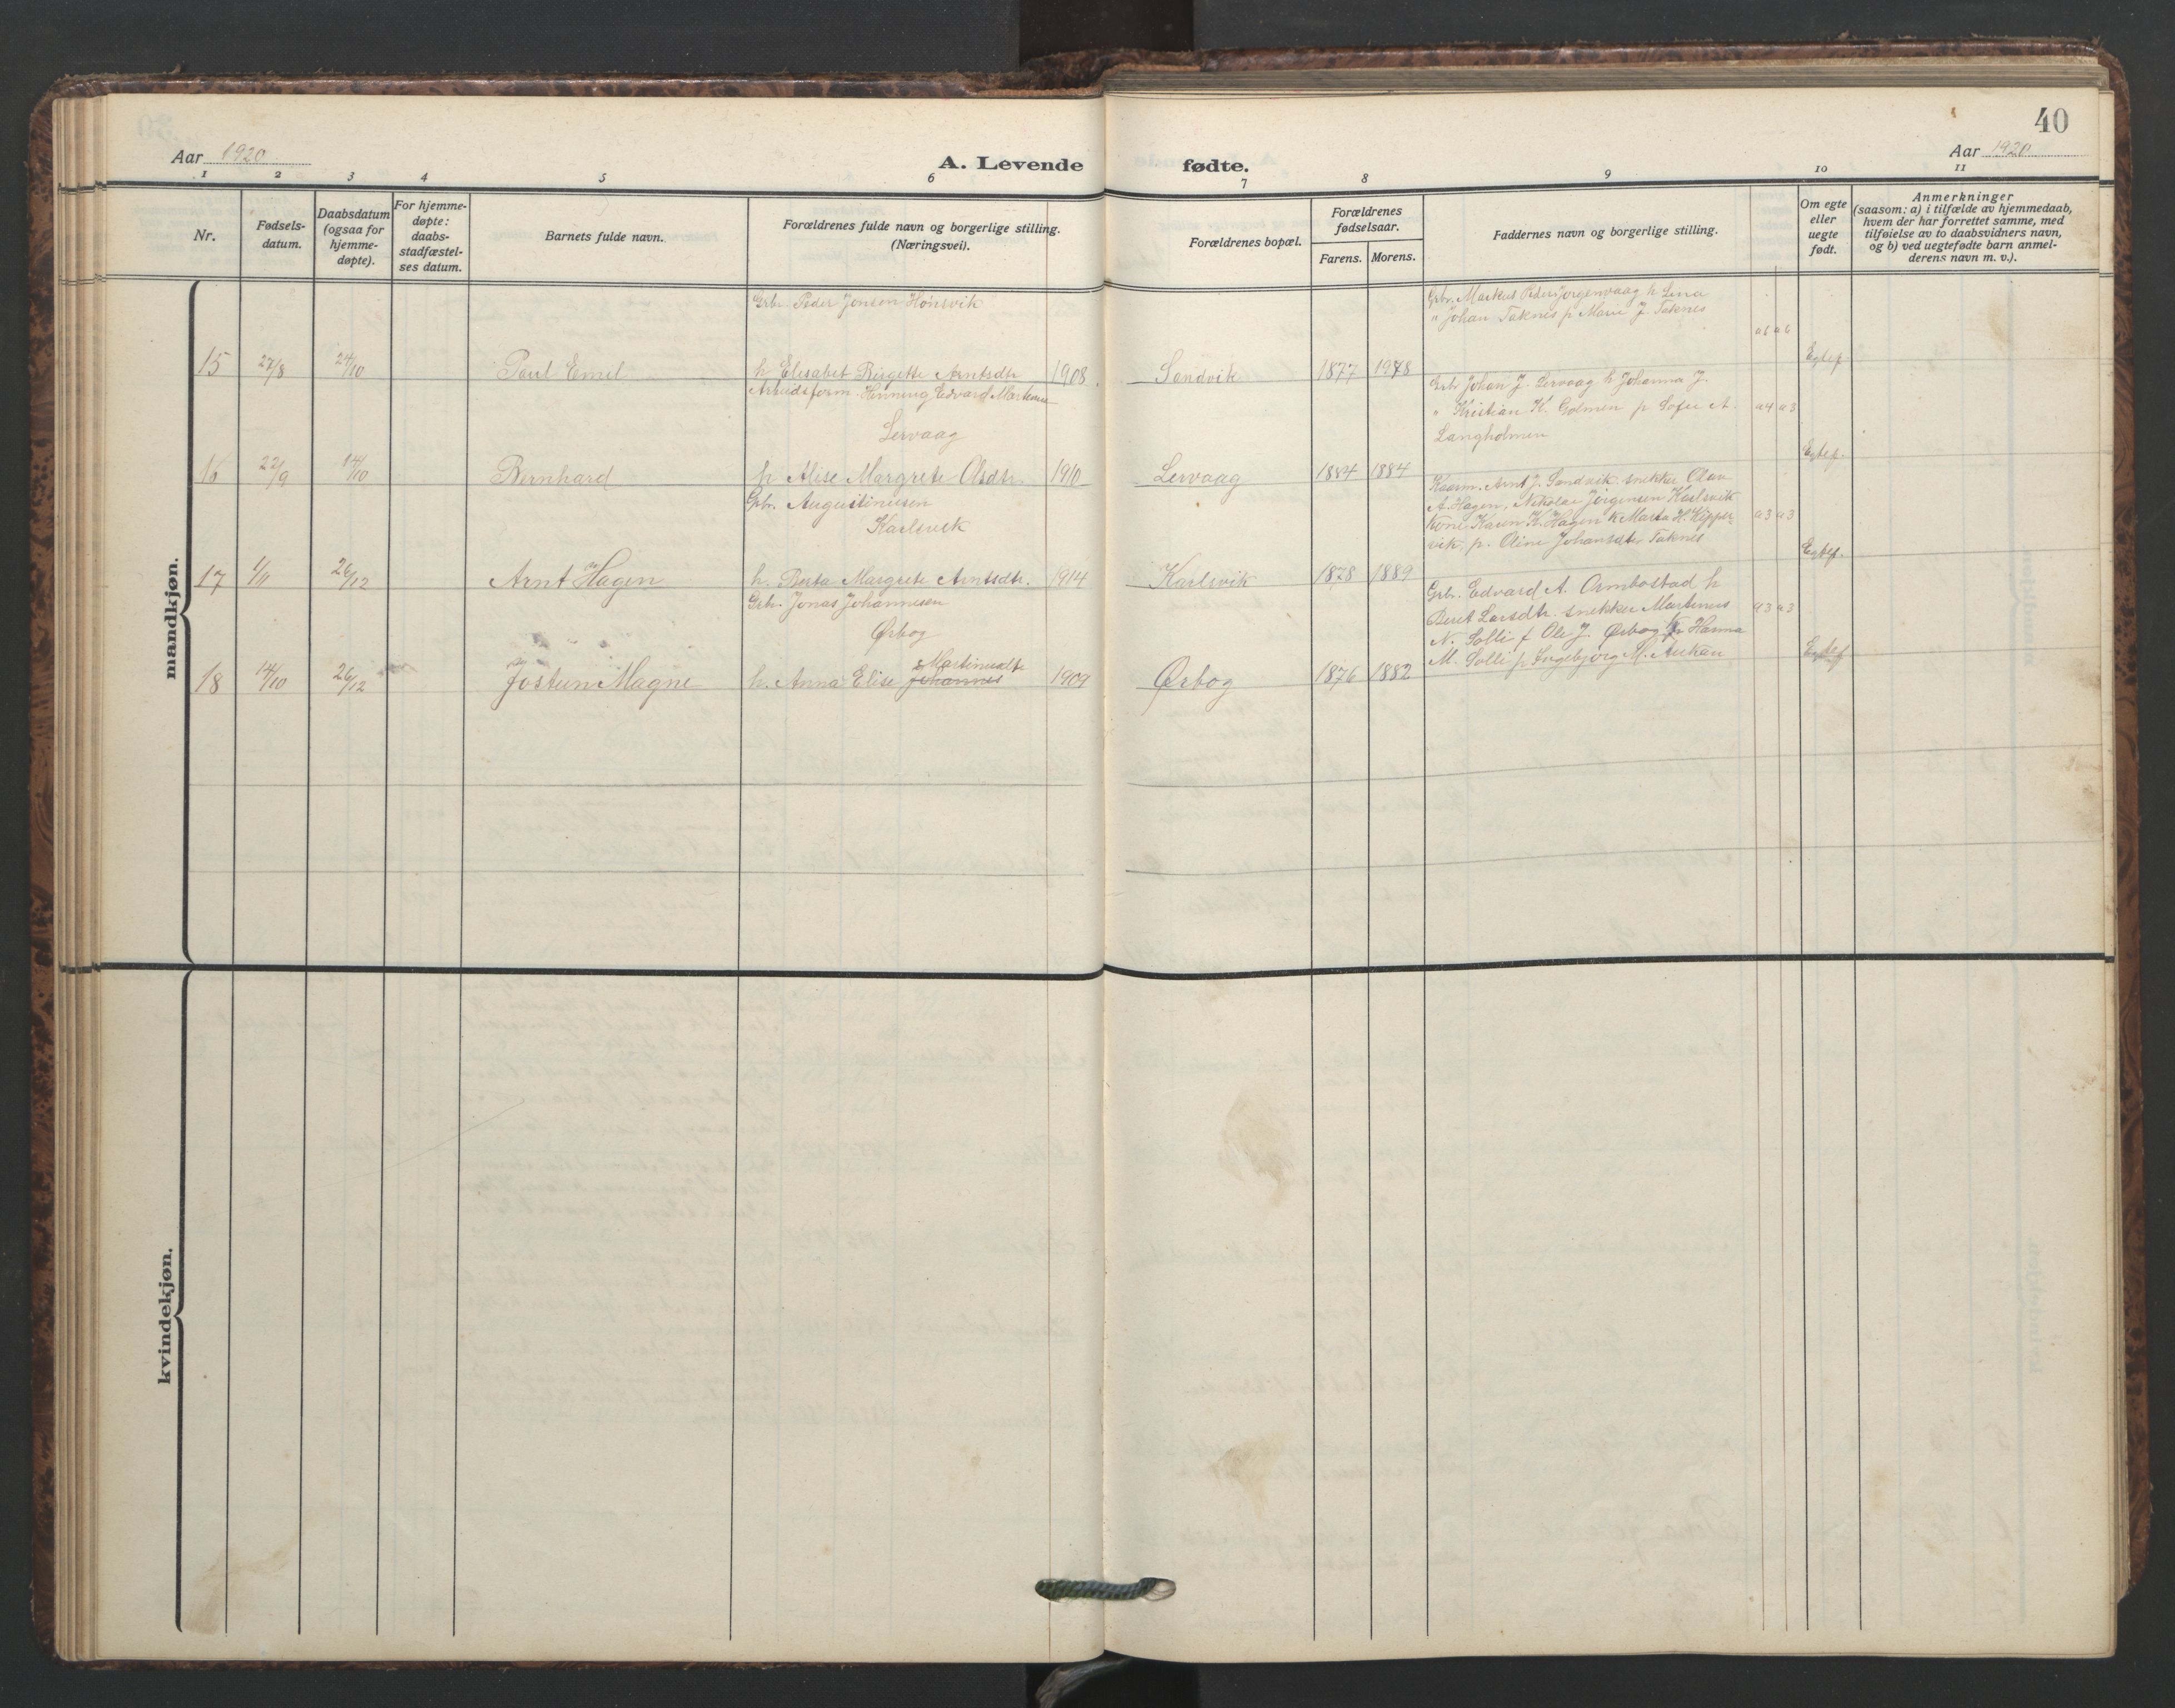 40
Aar 1920
A. Levende fødte.
Aar 1920
1 2 3 4 5 6 7 8 9 10 11
Nr.
Fødsels-
datum.
Daabsdatum
(ogsaa for
hjemme-
døpte).
For hjemme-
døpte:
daabs-
stadfæstel-
ses datum.
Barnets fulde navn.
Forældrenes fulde navn og borgerlige stilling.
(Næringsvei).
Forældrenes bopæl.
Forældrenes
fødselsaar.
Farens. Morens.
Faddernes navn og borgerlige stilling.
Om egte
eller
uegte
født.
Anmerkninger
(saasom: a) i tilfælde av hjemmedaab,
hvem der har forrettet samme, med
tilføielse av to daabsvidners navn,
og b) ved uegtefødte barn anmel-
derens navn m. v.).
mandkjøn.
Grbr. Peder Jonsen Honsvik
15 27/8 24/10 Paul Emil h Elisabet Birgitte Arntsdtr 1908 Sandvik 1877 1878
Grbr. Markus Peders Jørgenvaag h Lina
" Johan Taknes p Marie J. Taknes
a6 a6
Egtef.
Arbeidsform. Henning Edvard Martinsen
Lervaag
16 22/9 14/10 Bernhard h Alise Margrete Olsdtr. 1910 Lervaag 1884 1884
Grb Johan J. Lervaag h Johanna J.
" Kristian K. Golmen p Sofie A.
Langholmen
a4 a3
Egtef.
Grbr. Augustinusen
Karlsvik
17 1/11 26/12 Arnt Hagen h. Berta Margrete Arntsdtr. 1914 Karlsvik 1878 1889
Kaarm. Arnt J. Sandvik snekker Olav
A. Hagen, Nikolai Jørgensen Karlsvik
kone Karen K. Hagen k Marta H. Kipper-
vik p. Oline Johansdtr Taknes
a3 a3
Egtef.
Grb. Jonas Johannesen
Ørbog
18 14/10 26/12 Jostein Magne h. Anna Elise Johannes Martinusdtr 1909 Ørbog 1876 1882
Grb. Edvard A. Ormbostad h
Beret Larsdtr. snekker Martinus
N. Solli f Ole J. Ørbog Hanna
M. Solli p Ingebjørg M. Aukan
a3 a3
Egtef
kvindekjøn.